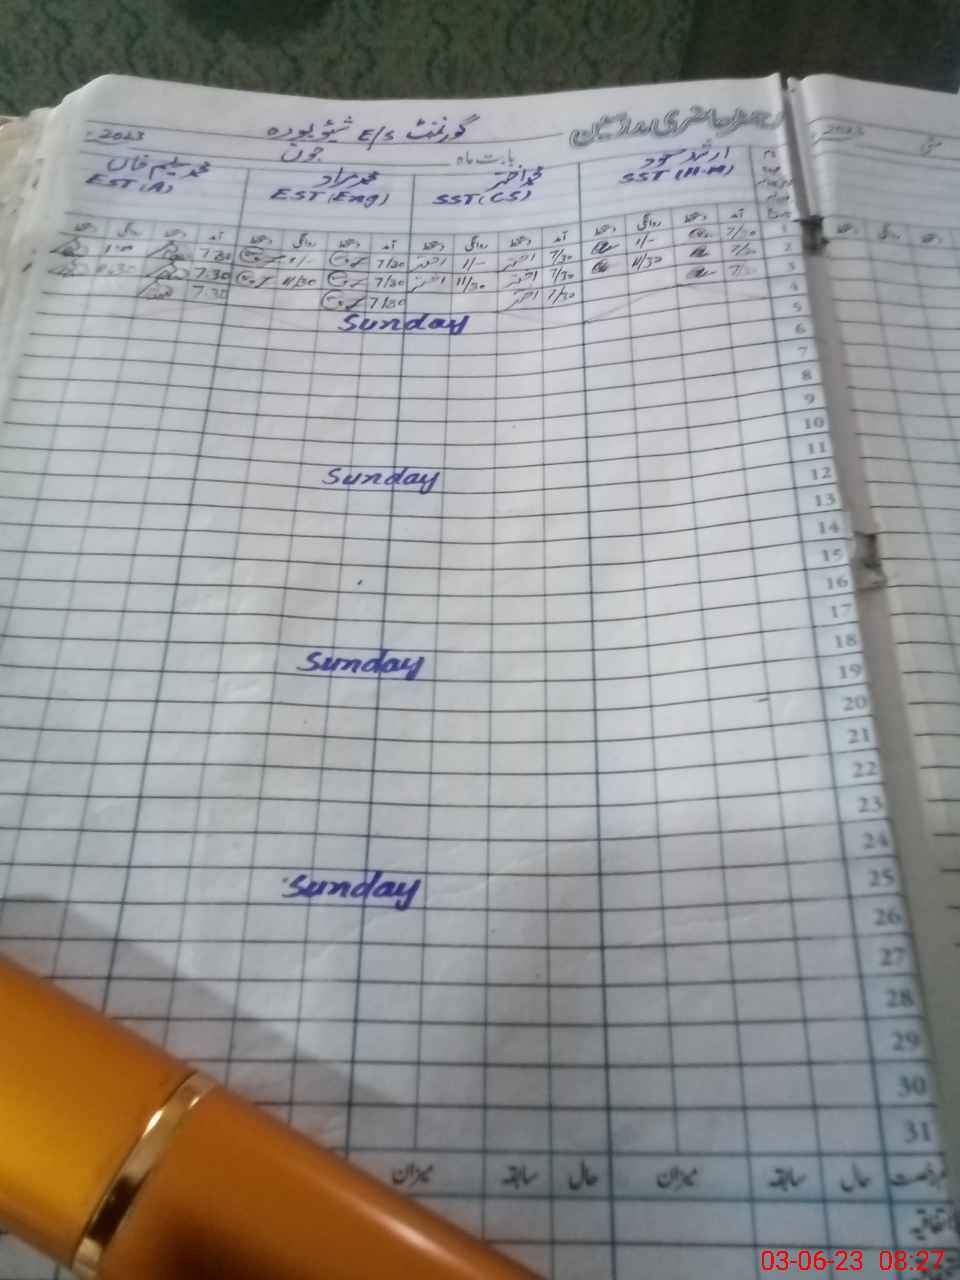 رجسٹر حاضری مدرسین گورنمنٹ E/S شیخوپورہ 2023
بابت ماہ جون
ارشد محمود محمد اختر محمد مراد محمد سلیم خاں
SST (H.M) SST (CS) EST (Eng) EST (A)
آمد دستخط روانگی دستخط آمد دستخط روانگی دستخط آمد دستخط روانگی دستخط آمد دستخط روانگی دستخط
1 7/30 1/- 7/30 اختر 1/- اختر 7/30 1/- 7:30
2 7/30 11/30 7/30 اختر 11/30 اختر 7/30 11/30 7:30
3 7/30 7/30 اختر 7/30 7:30
4 Sunday
5
6
7
8
9
10
11 Sunday
12
13
14
15
16
17
18 Sunday
19
20
21
22
23
24
25 Sunday
26
27
28
29
30
31
رخصت حال سابقہ میزان حال سابقہ میزان
اتفاقیہ
2023
مئی
03-06-23 08:27